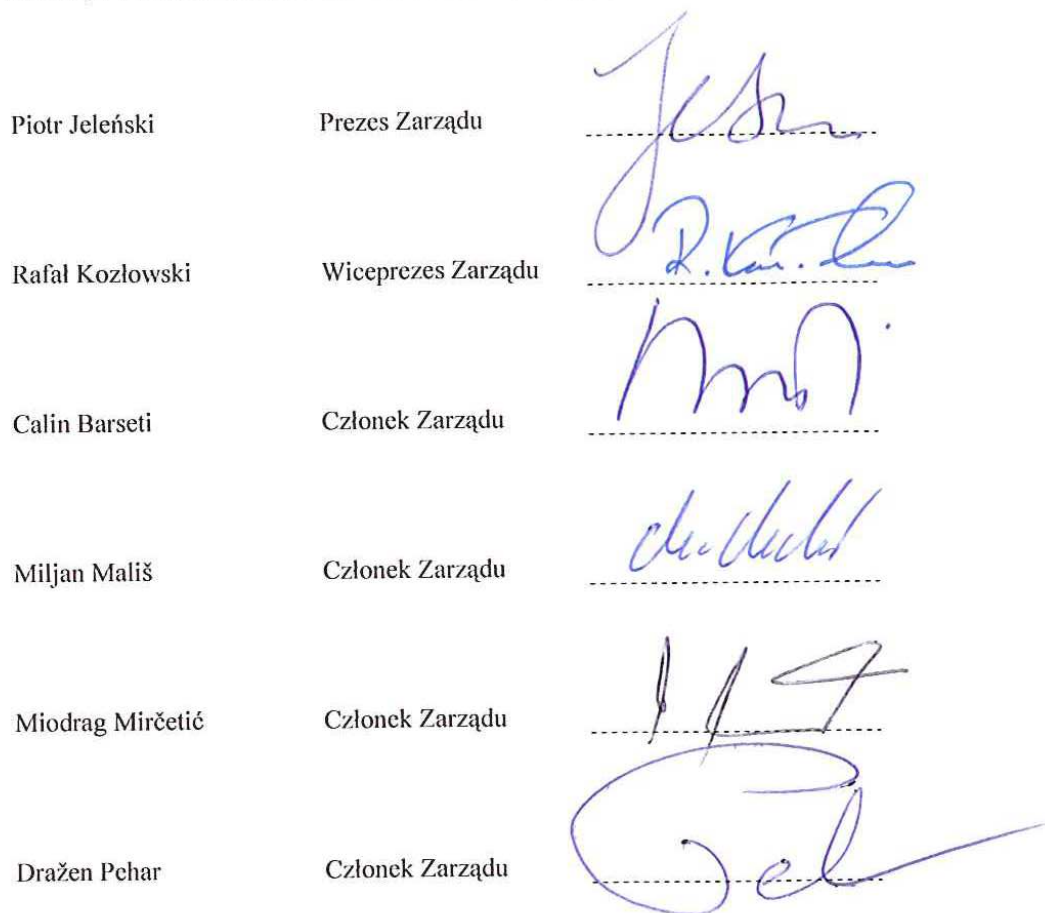 Piotr Jeleński Prezes Zarządu
Rafał Kozłowski Wiceprezes Zarządu
Calin Barseti Członek Zarządu
Miljan Mališ Członek Zarządu
Miodrag Mirčetić Członek Zarządu
Dražen Pehar Członek Zarządu